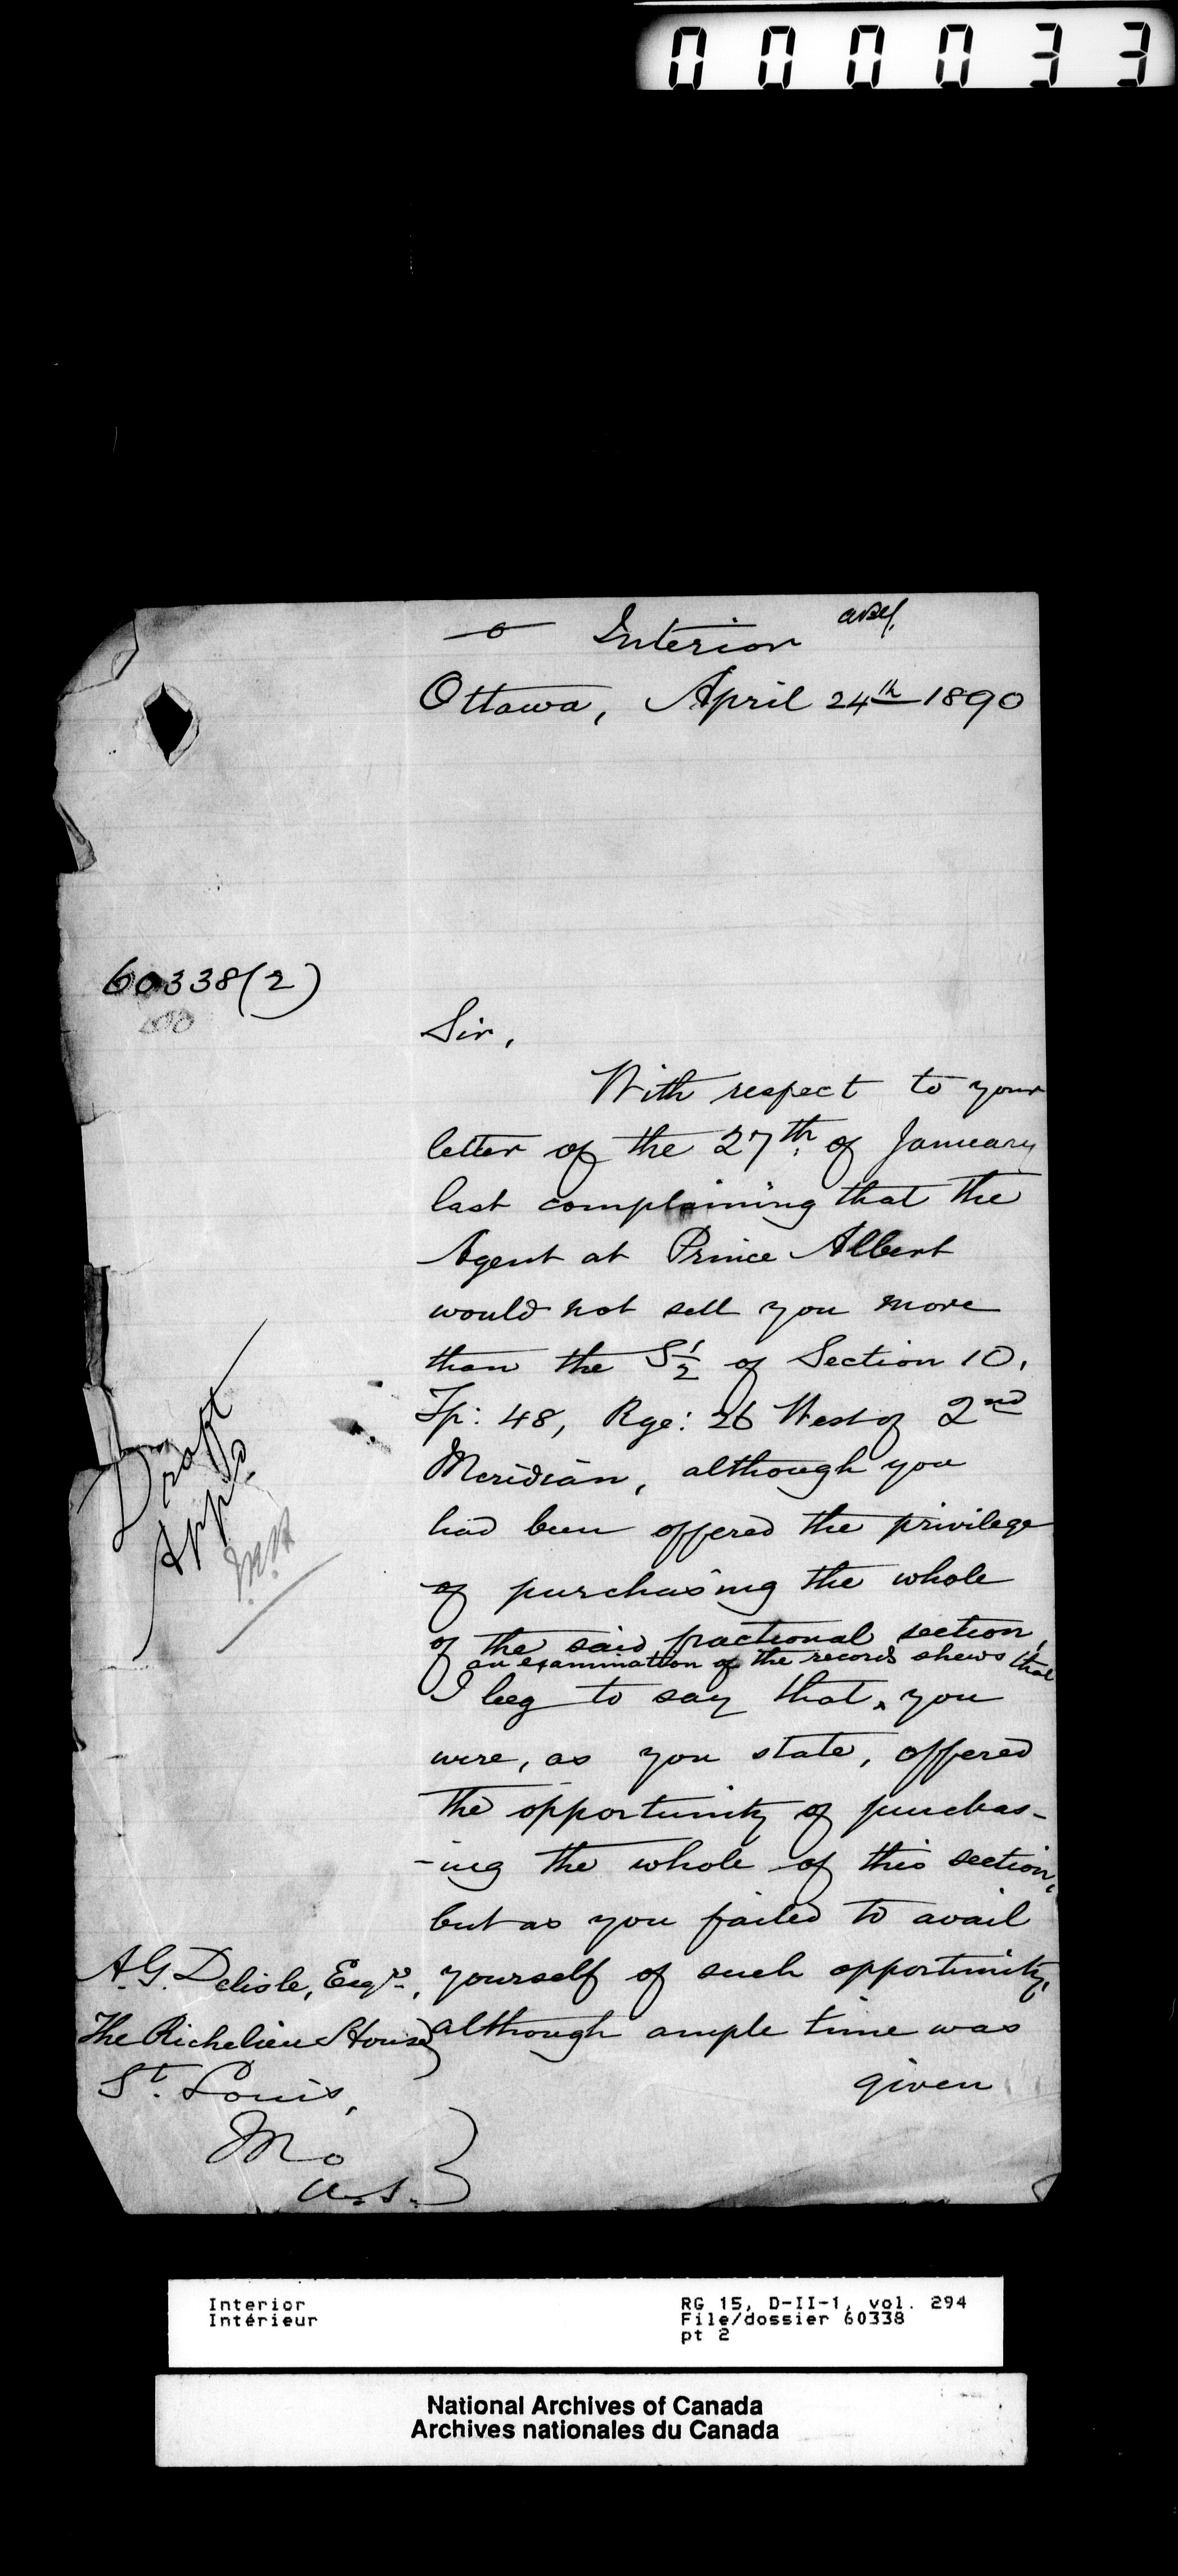 000033
Interior
Ottawa, April 24th 1890
60338(2)
Sir,
With respect to your
letter of the 27th. of January
last complaining that the
Agent at Prince Albert
would not sell you more
than the S½ of Section 10,
Tp: 48, Rge: 26 West of 2nd
Meridian, although you
had been offered the privilege
of purchasing the whole
of the said fractional section,
an examination of the records shews that
I beg to say that ‸ you
were, as you state, offered
the opportunity of purchas-
-ing the whole of this section,
but as you failed to avail
yourself of such opportunity,
although ample time was
given
Draft
Appd.
A.G. Delisle, Esqre.,
The Richelieu House
St. Louis,
Mo
U.S.
Interior
Intérieur
RG 15, D-II-1, vol. 294
File/dossier 60338
pt 2
National Archives of Canada
Archives nationales du Canada